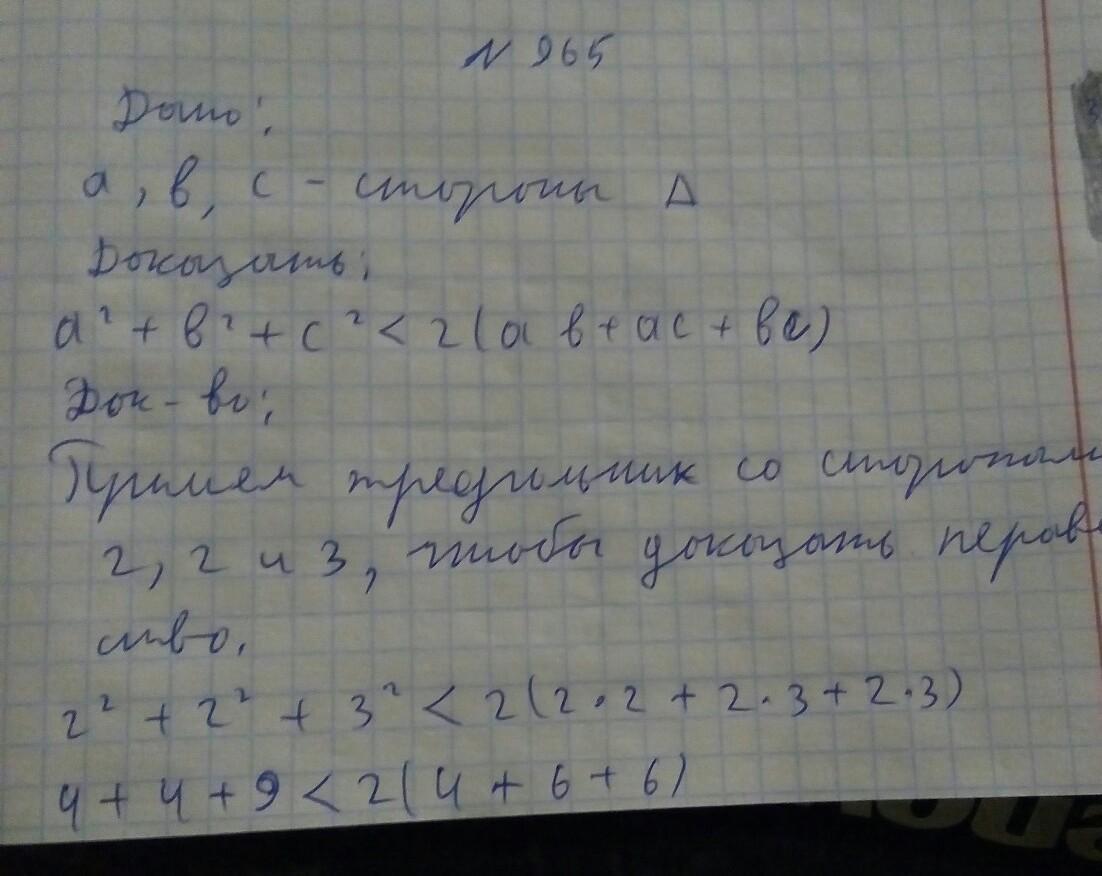 N 965
Дано:
а, в, с - стороны Δ
Доказать:
а² + в² + с² < 2(ав + ас + вс)
Док-во:
Примем треугольник со сторонами
2, 2 и 3, чтобы доказать нерав
ство.
2² + 2² + 3² < 2(2·2 + 2·3 + 2·3)
4 + 4 + 9 < 2(4 + 6 + 6)